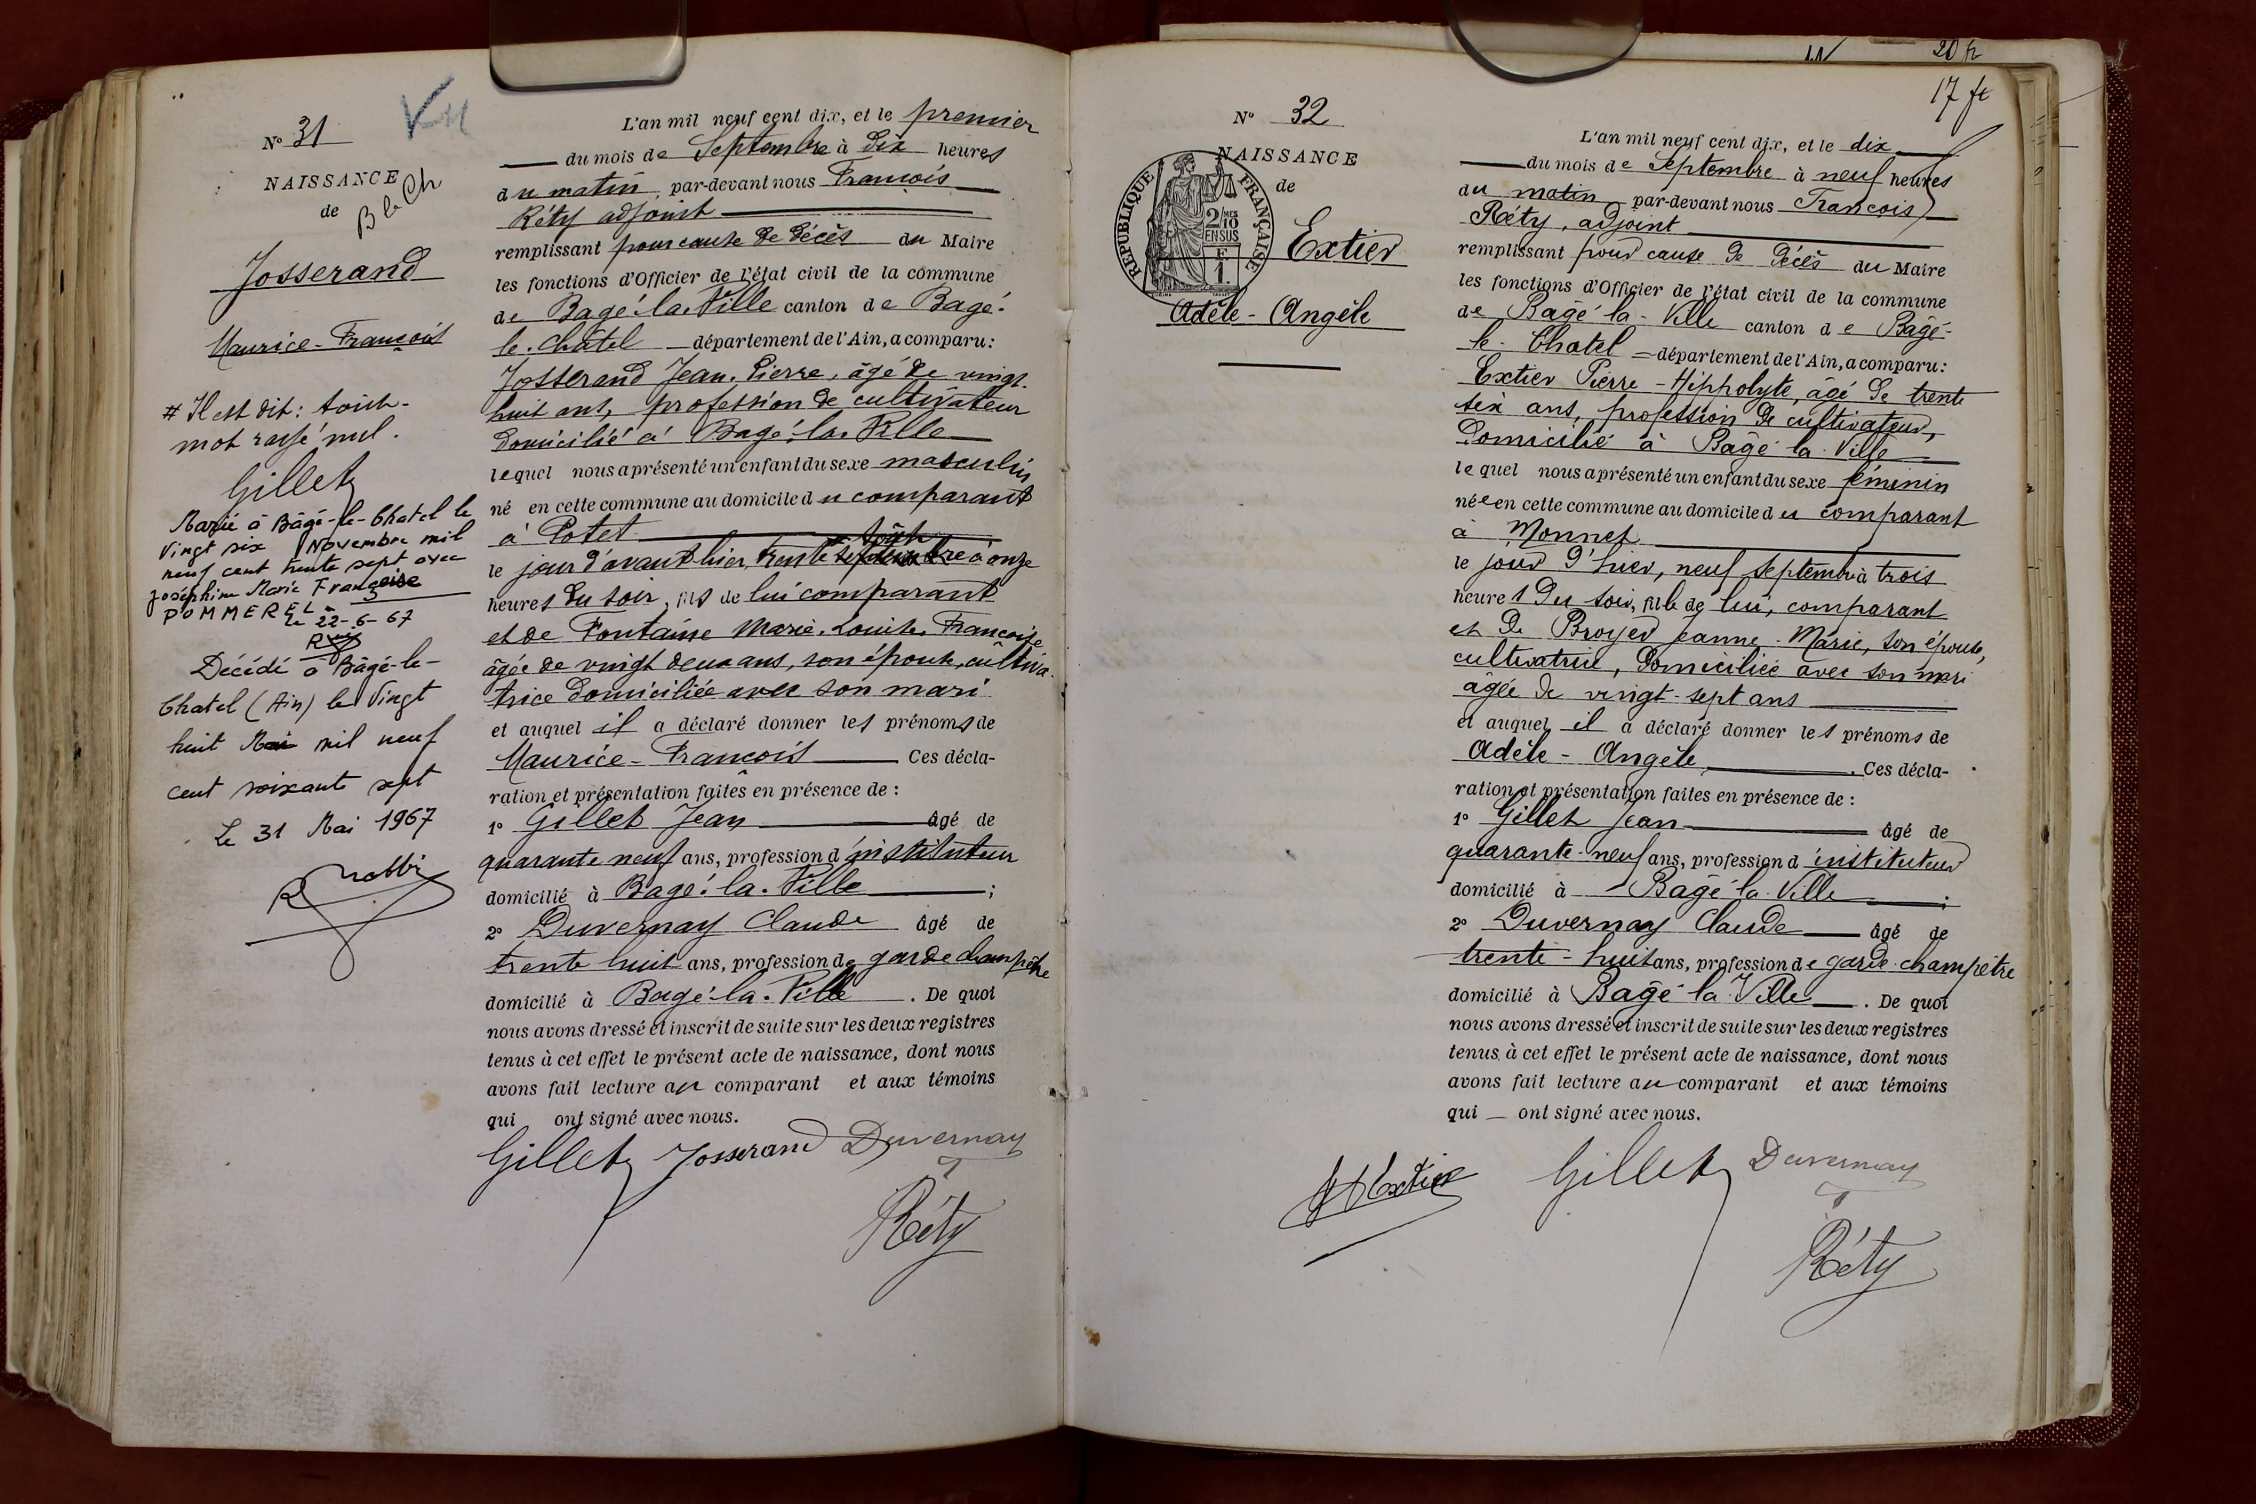 Nº 31
NAISSANCE
de
B le Ch
Josserand
Maurice-François
# Il est dit: août-
mot rayé nul.
Gillet
Marié à Bâgé-le-Chatel le
Vingt six Novembre mil
neuf cent trente sept avec
Joséphine Marie Françoise
POMMEREL
Le 22-6-67
Décédé à Bâgé-le-
Chatel (Ain) le Vingt
huit Mai mil neuf
cent soixante sept
Le 31 Mai 1967
L'an mil neuf cent dix, et le premier
du mois de Septembre à dix heures
du matin, par-devant nous François
Réty adjoint
remplissant pour cause de décès du Maire
les fonctions d'Officier de l'état civil de la commune
de Bagé-la-Ville canton de Bagé-
le-Châtel département de l'Ain, a comparu:
Josserand Jean-Pierre, âgé de vingt-
huit ans, profession de cultivateur
domicilié à Bagé-la-Ville
lequel nous a présenté un enfant du sexe masculin
né en cette commune au domicile du comparant
à Potet
août
le jour d'avant hier, trente septembre à onze
heures du soir, fils de lui comparant
et de Fontaine Marie-Louise-Françoise
âgée de vingt deux ans, son épouse, cultiva-
trice domiciliée avec son mari
et auquel il a déclaré donner les prénoms de
Maurice-François Ces décla-
ration et présentation faites en présence de :
1º Gillet Jean âgé de
quarante neuf ans, profession d'instituteur
domicilié à Bagé-la-Ville ;
2º Duvernay Claude âgé de
trente huit ans, profession de garde champêtre
domicilié à Bagé-la-Ville . De quoi
nous avons dressé et inscrit de suite sur les deux registres
tenus à cet effet le présent acte de naissance, dont nous
avons fait lecture au comparant et aux témoins
qui ont signé avec nous.
Gillet Josserand Duvernay
Réty
20 f
17 ft
Nº 32
NAISSANCE
de
RÉPUBLIQUE FRANÇAISE
2/10 MES
EN SUS
F
1.
Extier
Adèle-Angèle
L'an mil neuf cent dix, et le dix
du mois de Septembre à neuf heures
du matin par-devant nous François
Réty, adjoint
remplissant pour cause de décès du Maire
les fonctions d'Officier de l'état civil de la commune
de Bâgé-la-Ville canton de Bâgé-
le-Chatel département de l'Ain, a comparu:
Extier Pierre-Hippolyte, âgé de trente
six ans, profession de cultivateur,
domicilié à Bâgé-la-Ville
lequel nous a présenté un enfant du sexe féminin
née en cette commune au domicile du comparant
à Monnet
le jour d'hier, neuf Septembre à trois
heures du soir, fille de lui, comparant
et de Broyer Jeanne-Marie, son épouse,
cultivatrice, domiciliée avec son mari
âgée de vingt-sept ans
et auquel il a déclaré donner les prénoms de
Adèle-Angèle . Ces décla-
ration et présentation faites en présence de :
1º Gillet Jean âgé de
quarante-neuf ans, profession d'instituteur
domicilié à Bâgé-la-Ville ;
2º Duvernay Claude âgé de
trente-huit ans, profession de garde-champêtre
domicilié à Bâgé-la-Ville . De quoi
nous avons dressé et inscrit de suite sur les deux registres
tenus à cet effet le présent acte de naissance, dont nous
avons fait lecture au comparant et aux témoins
qui ont signé avec nous.
Extier Gillet Duvernay
Réty